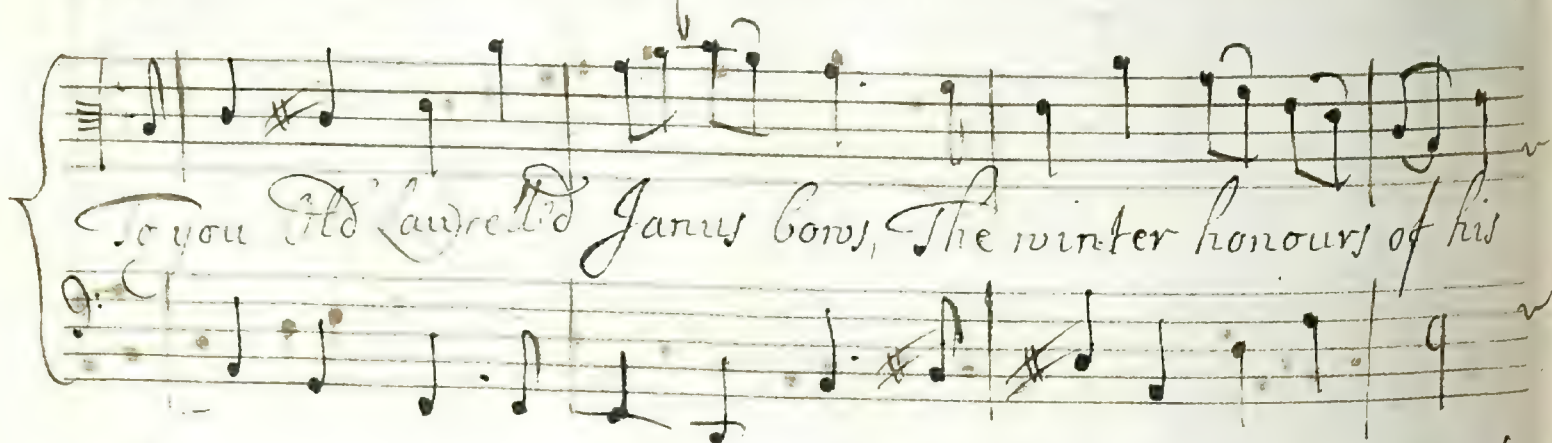 To you Old Lawrell'd Janus bows, The winter honours of his